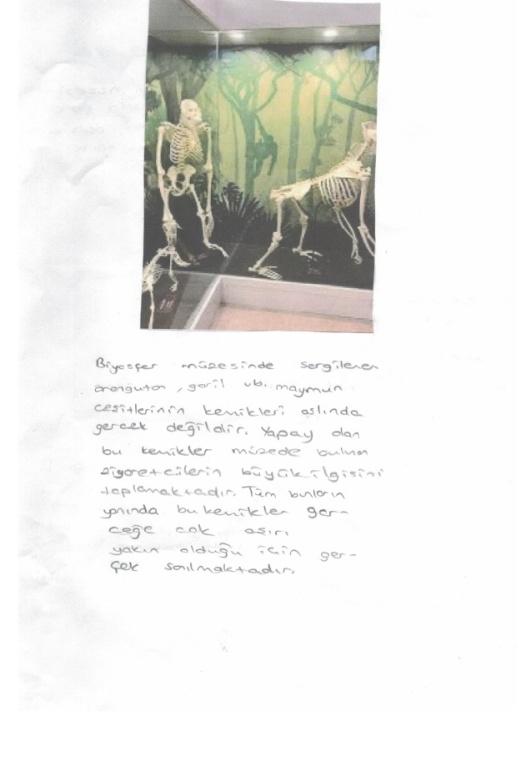 Biyosfer müzesinde sergilenen
orangutan, goril vb. maymun
çeşitlerinin kemikleri aslında
gerçek değildir. Yapay olan
bu kemikler müzede bulunan
ziyaretcilerin büyük ilgisini
toplamaktadır. Tüm bunların
yanında bu kemikler ger-
çeğe çok aşırı
yakın olduğu için ger-
çek sanılmaktadır.